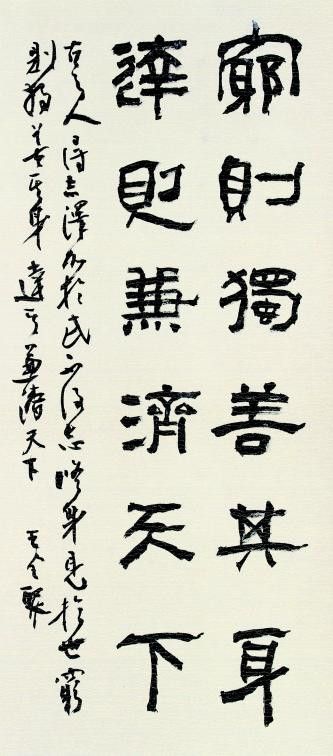 窮則獨善其身
達則兼濟天下
古之人得志澤加於民不得志修身見於世窮
則獨善其身達則兼濟天下